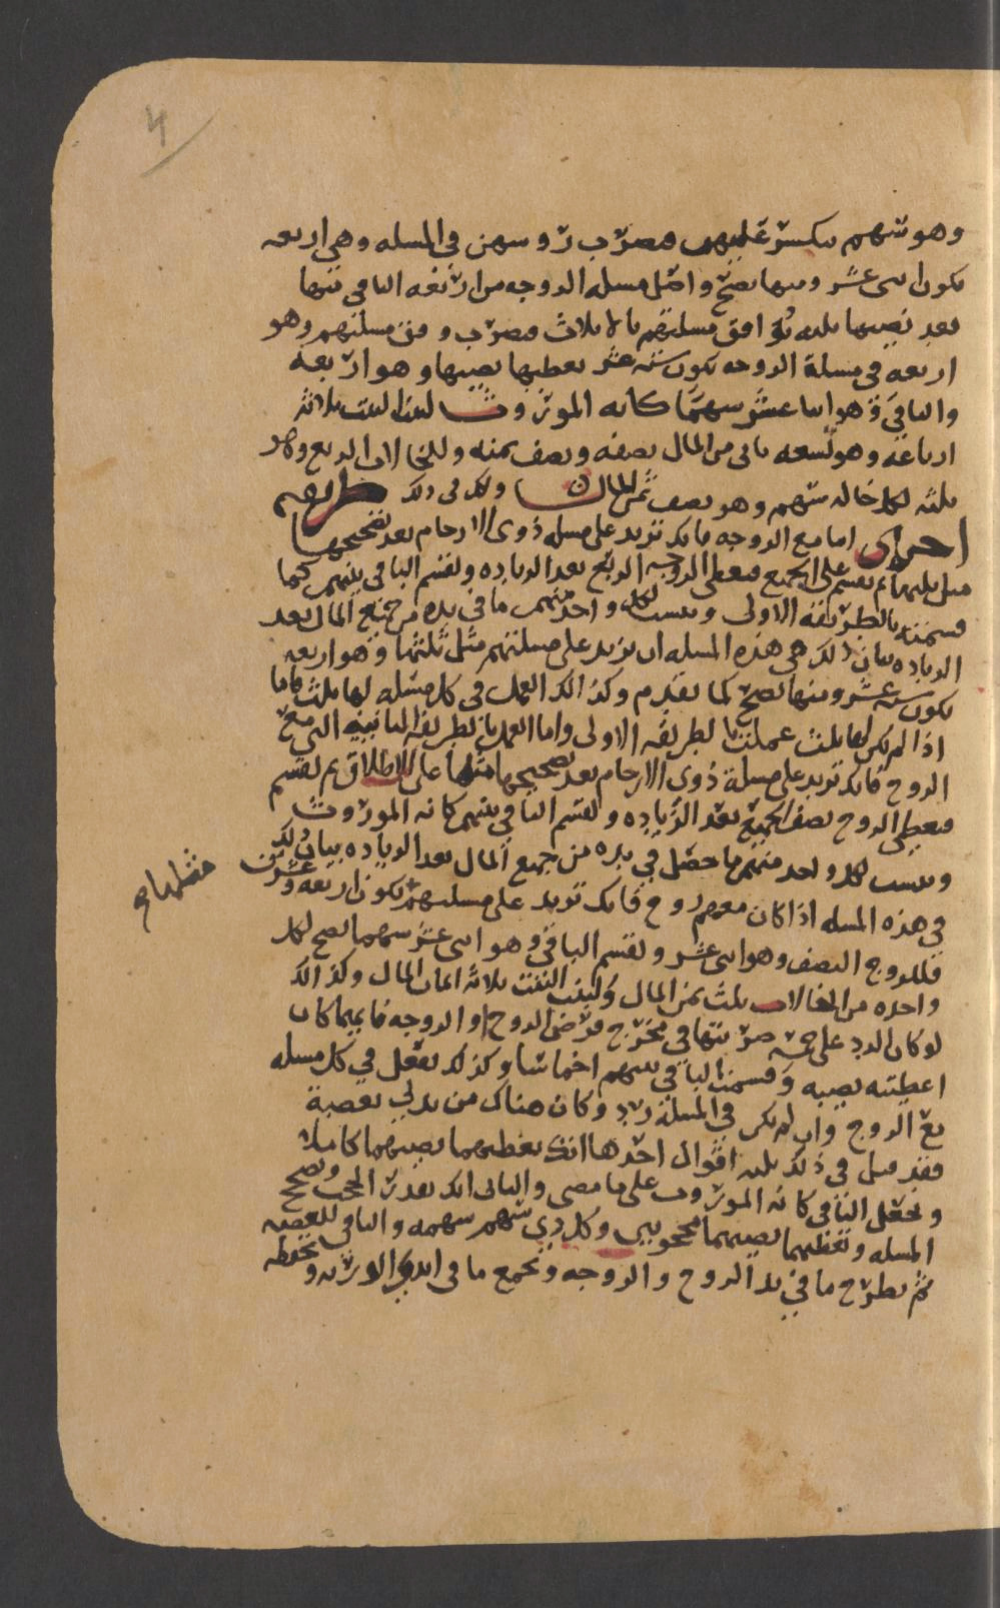 4
وهو سهم ينكسر عليهن فيضرب روسهن في المسله وهي اربعه
يكون اثنى عشر ومنها تصح واصل مسله الزوجه من اربعه الباقي منها
بعد نصيبها ثلثه توافق مسلتهم بالاثلاث فيضرب وفق مسلتهم وهو
اربعه في مسلة الزوجه يكون سته عشر يعطيها نصيبها وهو اربعه
والباقي وهو اثنا عشر سهما كانه الموروث لبنت البنت ثلاثه
ارباعه وهو تسعه ياتي من المال نصفه ونصف ثمنه وللخالات الربع وهو
ثلثه لكل خاله سهم وهو نصف ثمن المال ولك في ذلك طريقه
اخرى اما مع الزوجه فانك تزيد على مسله ذوي الارحام بعد تصحيحها
مثل ثلثها ثم تقسم على الجميع فيعطى الزوجه الربع بعد الزياده وتقسم الباقي بينهم كما
قسمته بالطريقه الاولى وتنسب لكل واحد منهم ما في يده من جميع المال بعد
الزياده بيان ذلك في هذه المسله ان تزيد على مسلتهم مثل ثلثها وهو اربعه
يكون سته عشر ومنها تصح كما تقدم وكذالك العمل في كل مسله لها ثلث فاما
اذا لم يكن لها ثلث عملت بالطريقه الاولى واما العمل بالطريقه الثانيه التي مع
الزوج فانك تزيد على مسلة ذوي الارحام بعد تصحيحها مثلها على الاطلاق ثم تقسم
فيعطى الزوج نصف الجميع بعد الزياده وتقسم الباقي بينهم كانه الموروث
وتنسب لكل واحد منهم ما حصل في يده من جميع المال بعد الزياده بيان ذلك
في هذه المسله اذا كان معهم زوج فانك تزيد على مسلتهم مثلها يكون اربعه وعشرين
فللزوج النصف وهو اثنى عشر وتقسم الباقي وهو اثنى عشر سهما تصح لكل
واحده من الخالات ثلث ثمن المال ولبنت البنت ثلاثه اثمان المال وكذالك
لو كان الرد على خمسه ضربتها في مخرج فرض الزوج او الزوجه فايهما كان
اعطيته نصيبه وقسمت الباقي بينهم اخماسا وكذلك تفعل في كل مسله
مع الزوج وان لم يكن في المسلة رد وكان هناك من يدلي بعصبة
فقد قيل في ذلك ثلثه اقوال احدها انك تعطيهما نصيبهما كاملا
وتجعل الباقي كانه الموروث على ما مضى والثاني انك تقدر الحجب وتصحح
المسله وتعطيهما نصيبهما محجوبين وكل ذي سهم سهمه والباقي للعصبه
ثم تطرح ما في يد الزوج والزوجه وتجمع ما في ايدي الورثه وتحفظه